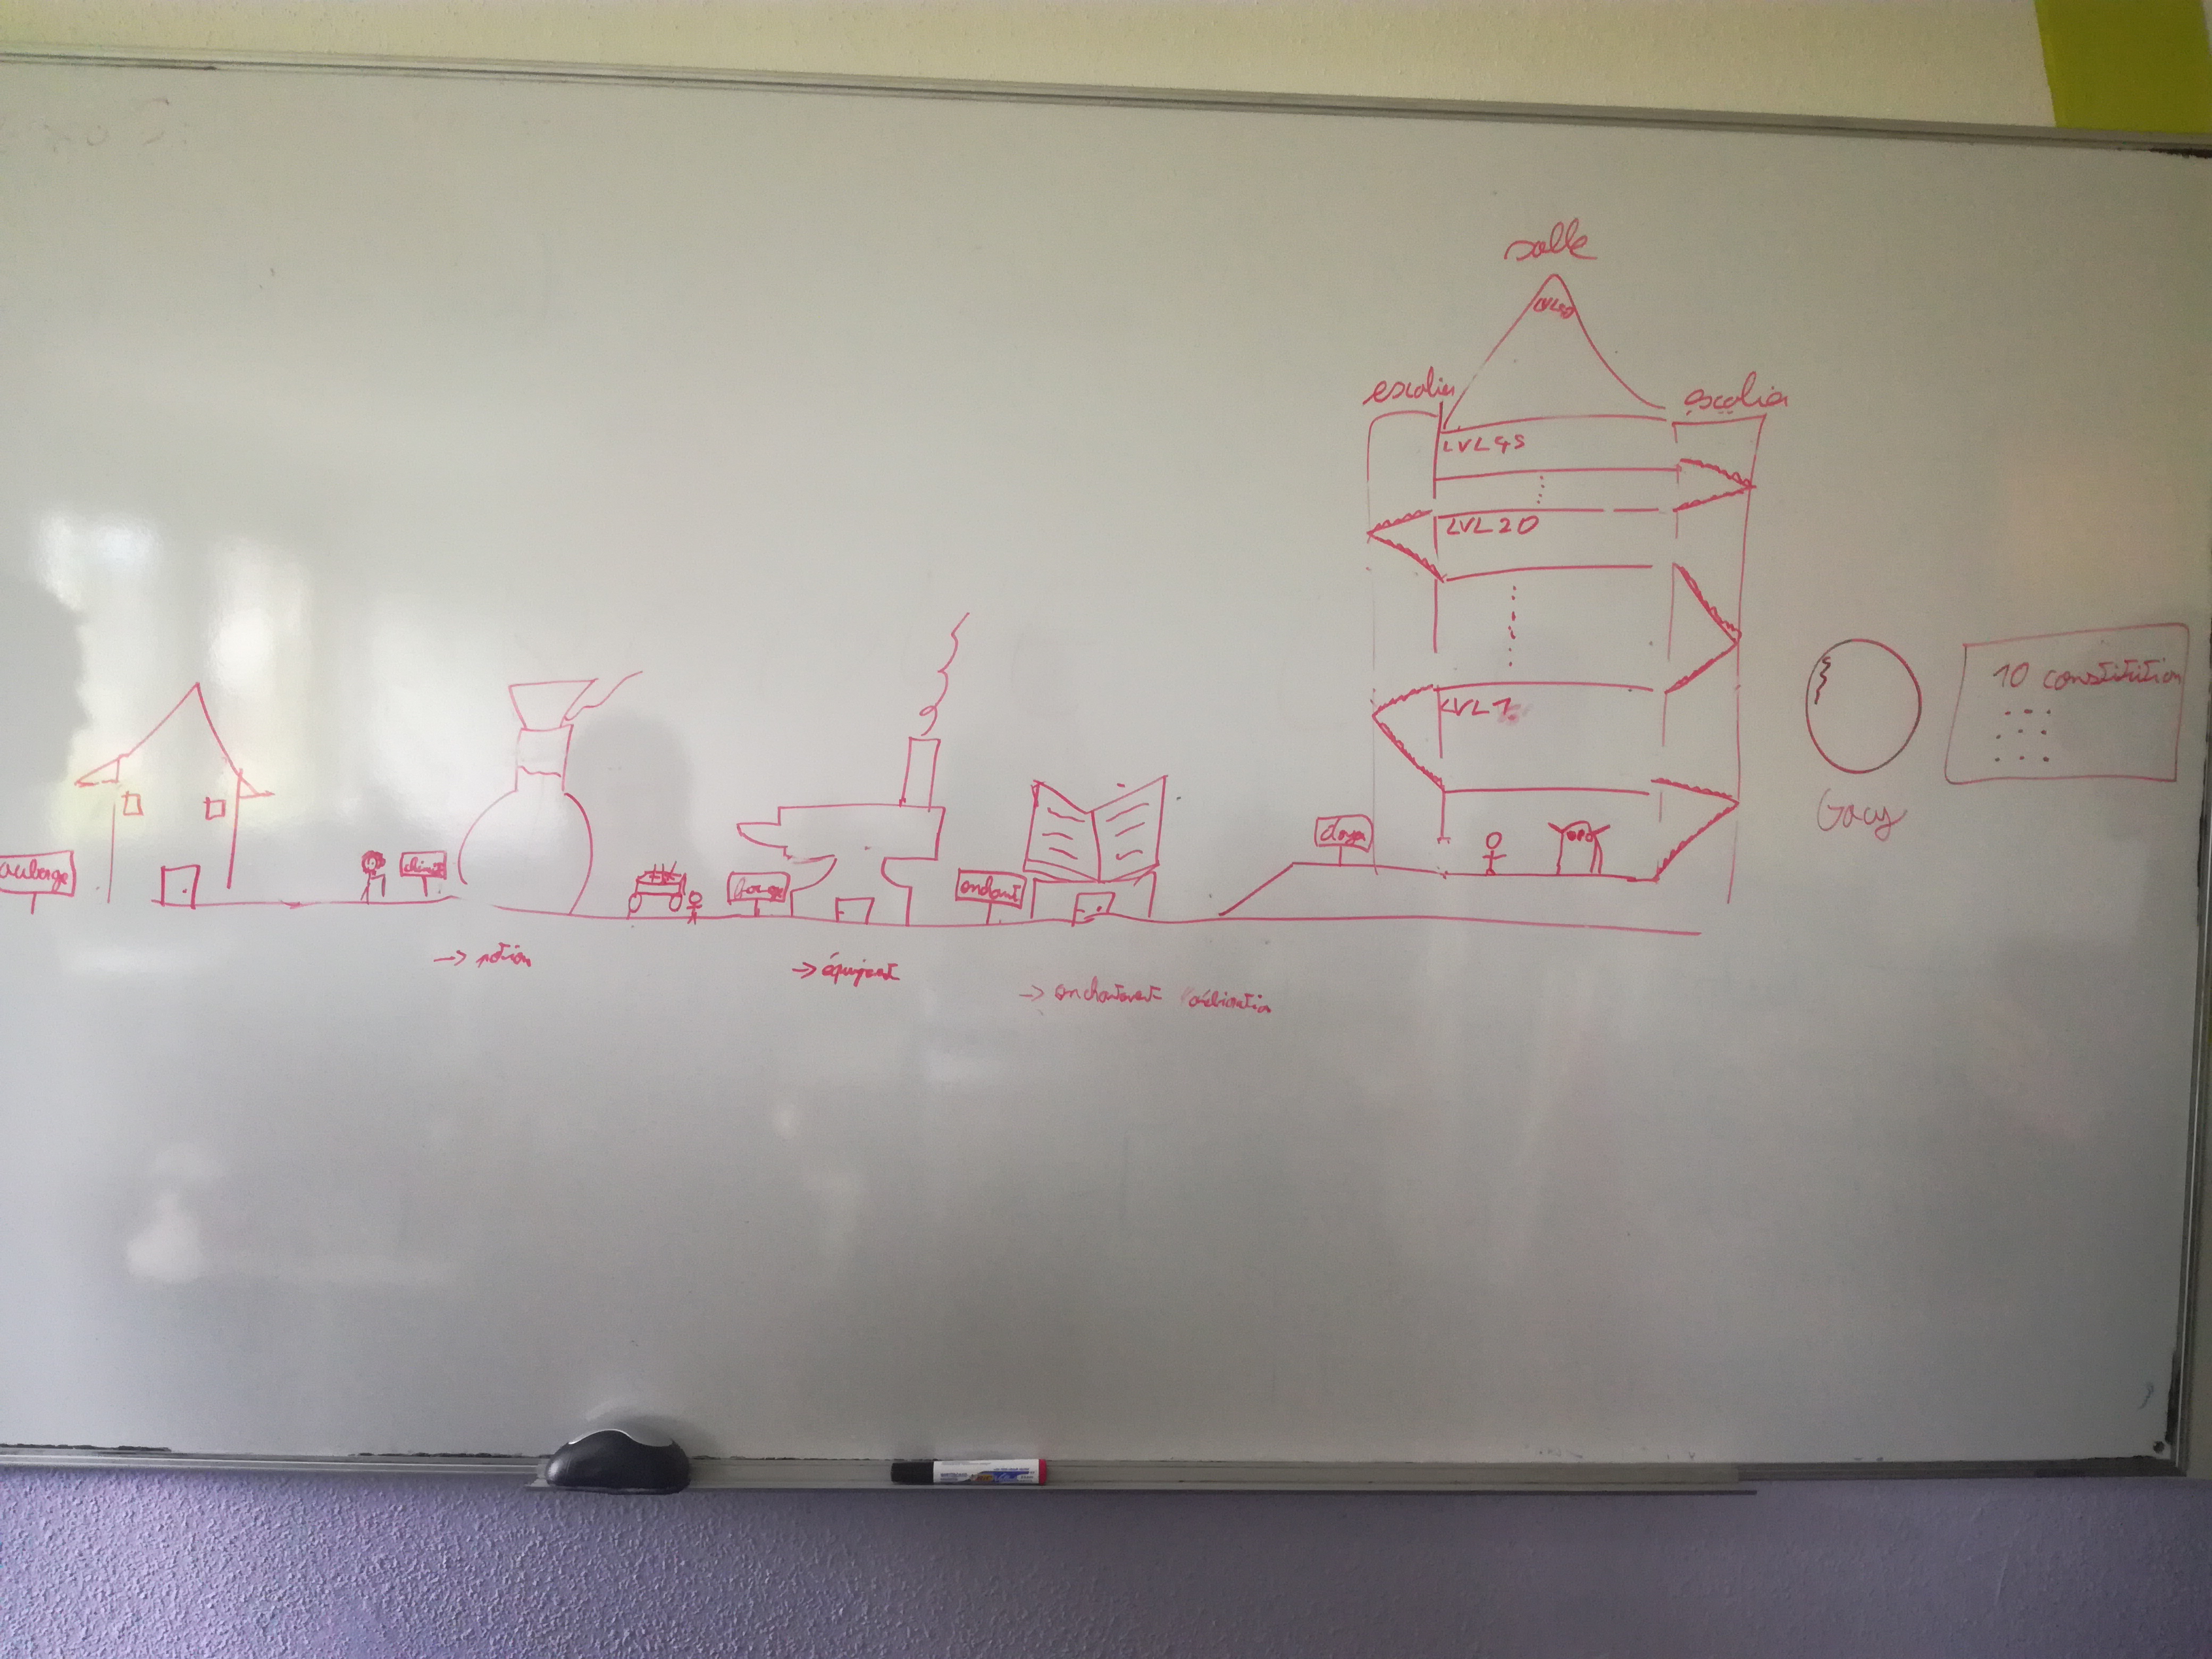 salle
escalier
escalier
LVL 45
LVL 20
LVL 1
10 constitution
auberge
forge
enchant
donj
→ potion
→ équipent
→ enchantement